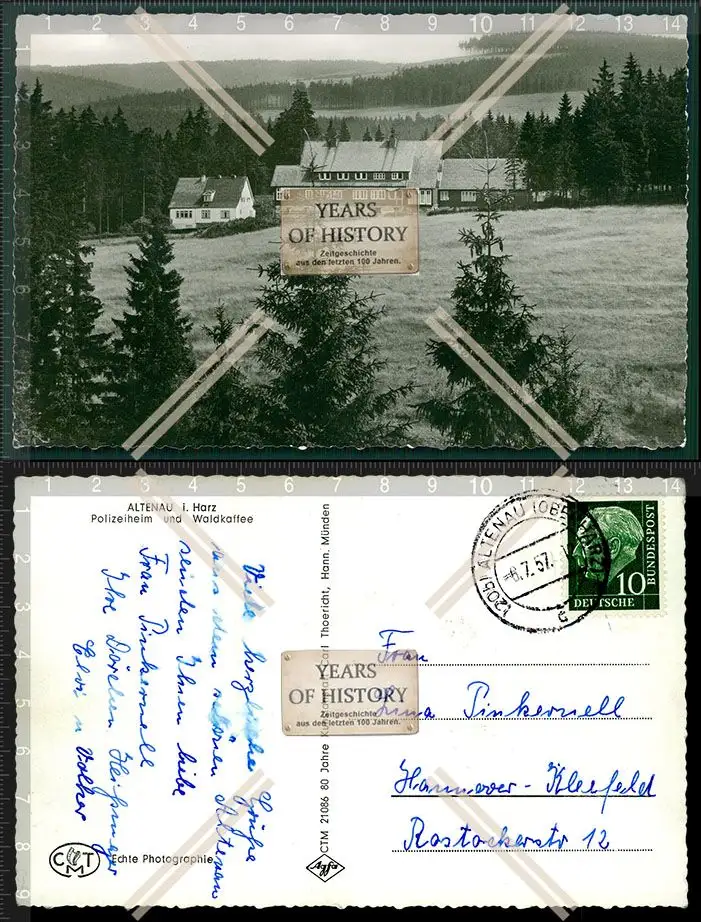 1 2 3 4 5 6 7 8 9 10 11 12 13 14
YEARS
OF HISTORY
Zeitgeschichte
aus den letzten 100 Jahren.
1 2 3 4 5 6 7 8 9 10 11 12 13 14
ALTENAU i. Harz
Polizeiheim und Waldkaffee
Viele herzliche Grüße
aus dem schönen Altenau
senden Ihnen liebe
Frau Pinkernell
Ihre Dorchen
Elvi u Volker
CTM
Echte Photographie
CTM 21086 80 Jahre Carl Thoericht, Hann. Münden
Agfa
(20b) ALTENAU (OBERHARZ)
-8.7.57.
DEUTSCHE
BUNDESPOST
10
YEARS
OF HISTORY
Zeitgeschichte
aus den letzten 100 Jahren.
Frau
Pinkernell
Hannover-Kleefeld
Rostockerstr 12